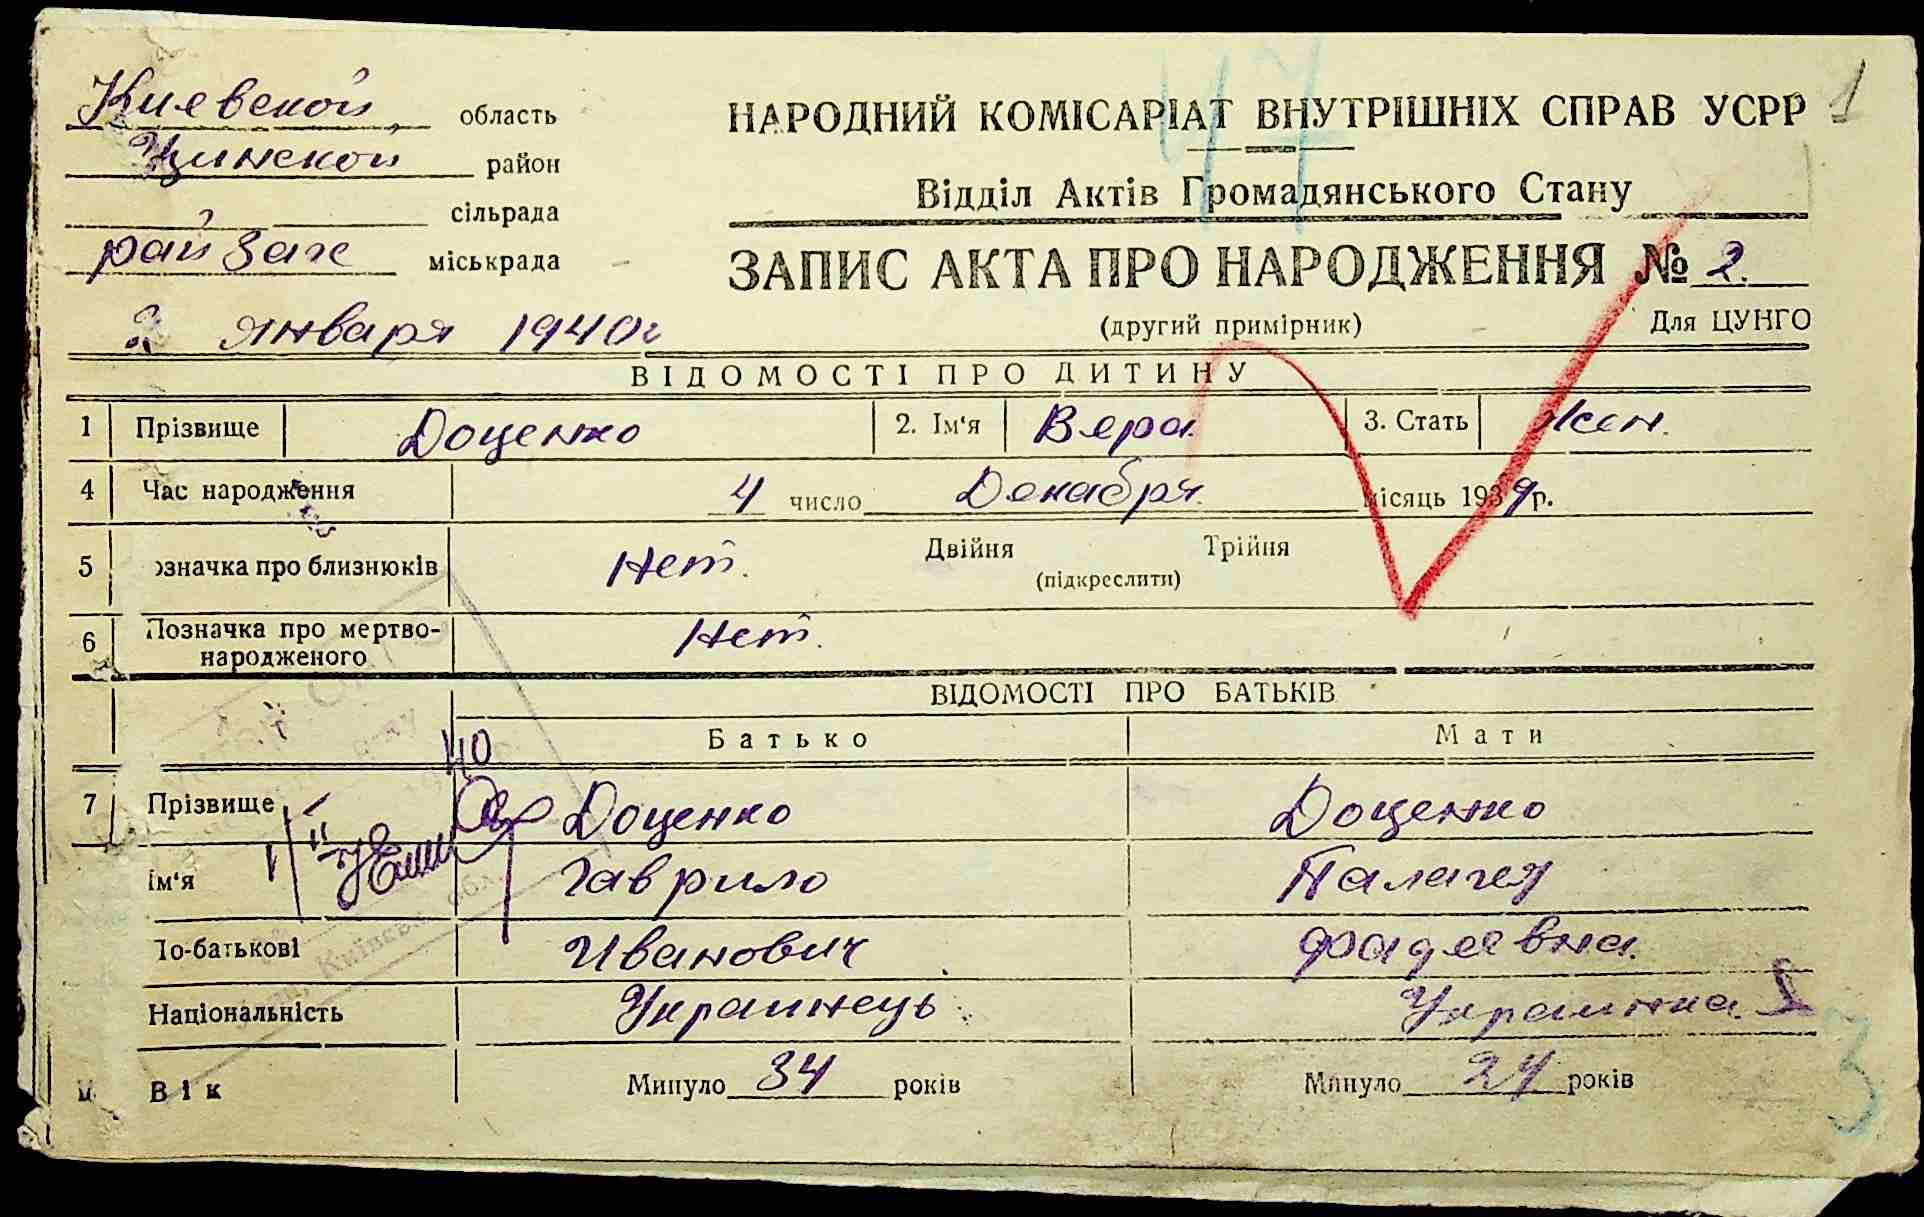 Киевской область
район
сільрада
райЗагс міськрада
47
1
НАРОДНИЙ КОМІСАРІАТ ВНУТРІШНІХ СПРАВ УСРР
Відділ Актів Громадянського Стану
ЗАПИС АКТА ПРО НАРОДЖЕННЯ № 2.
2 января 1940г
(другий примірник) Для ЦУНГО
ВІДОМОСТІ ПРО ДИТИНУ
1 Прізвище Доценко 2. Ім'я Вера 3. Стать жен.
4 Час народження 4 число Декабря місяць 1939р.
5 означка про близнюків Нет. Двійня Трійня
(підкреслити)
6 Позначка про мертво-
народженого Нет.
ВІДОМОСТІ ПРО БАТЬКІВ
Батько Мати
40
7 Прізвище Доценко Доценко
Ім'я Гаврило Палагея
По-батькові Иванович Фадеевна
Національність Украинець Украинка
3
Вік Минуло 34 років Минуло 24 років